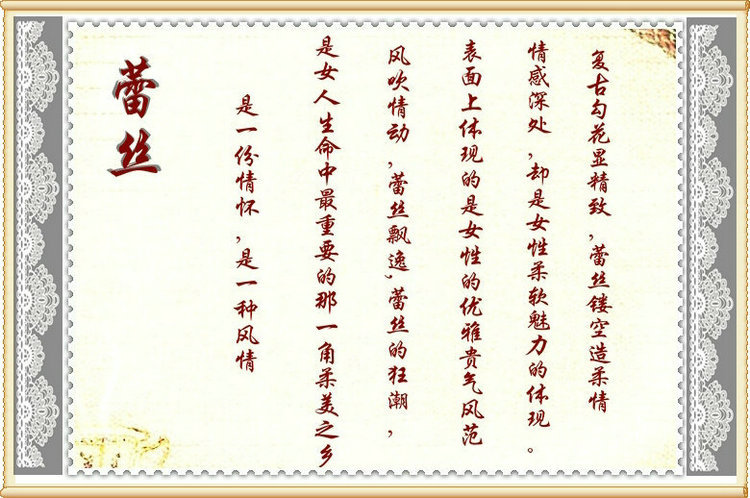 蕾丝
是一份情怀,是一种风情
是女人生命中最重要的那一角柔美之乡
风吹情动,蕾丝飘逸,蕾丝的狂潮,
表面上体现的是女性的优雅贵气风范
情感深处,却是女性柔软魅力的体现。
复古勾花显精致,蕾丝镂空造柔情